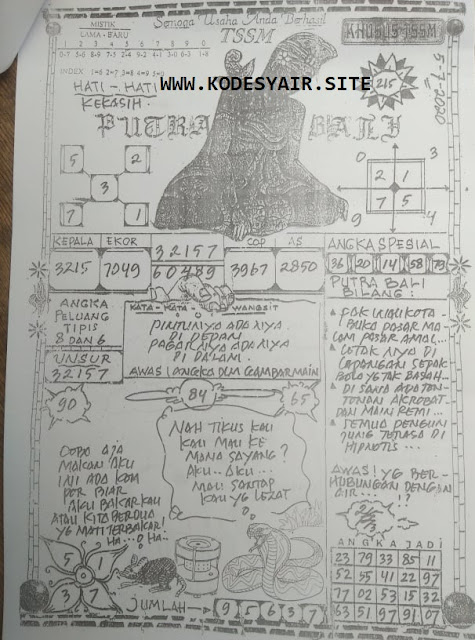 MISTIK
LAMA - BARU
1 2 3 4 5 6 7 8 9 0
0-7 5-8 6-9
INDEX 1=6 2=7 3=8 4=9 5=0
Semoga Usaha Anda Berhasil
TSSM
KHUSUS TSSM
215
5-7-2020
WWW.KODESYAIR.SITE
HATI-HATI
KEKASIH.
PUTRA BALI
5 2
3
7 1
0 3
2 1
7 5
9 4
KEPALA EKOR
3215 7049
32157
60489
COP AS
3967 2850
ANGKA SPESIAL
36 20 14 58 79
ANGKA
PELUANG
TIPIS
8 DAN 6
UNSUR
32157
KATA-KATA WANGSIT
PINTUNYA ADANYA
DI DEPAN
PAGARNYA ADANYA
DI DALAM.
AWAS! ANGKA DLM GAMBAR MAIN
PUTRA BALI
BILANG:
DI SANA ADA TON-
TONAN AKROBAT
DAN MAIN REMI...
HIPNOTIS...
90
84
65
COBA AJA
MAKAN AKU
INI ADA KOM
POR BIAR
AKU BAKAR KAU
ATAU KITA BERDUA
YG MATI TERBAKAR!
HA...O HA-
NAH TIKUS KAU
KAU MAU KE
MANA SAYANG?
AKU.. AKU...
MAU SANTAP
KAU YG LEZAT
AWAS! YG BER-
HUBUNGAN DENGAN
AIR...!?
5 1
3 7
JUMLAH → 9 5 6 3 7
ANGKA JADI
23 79 33 85 11
52 55 41 22 97
77 02 53 15 32
63 51 97 91 07